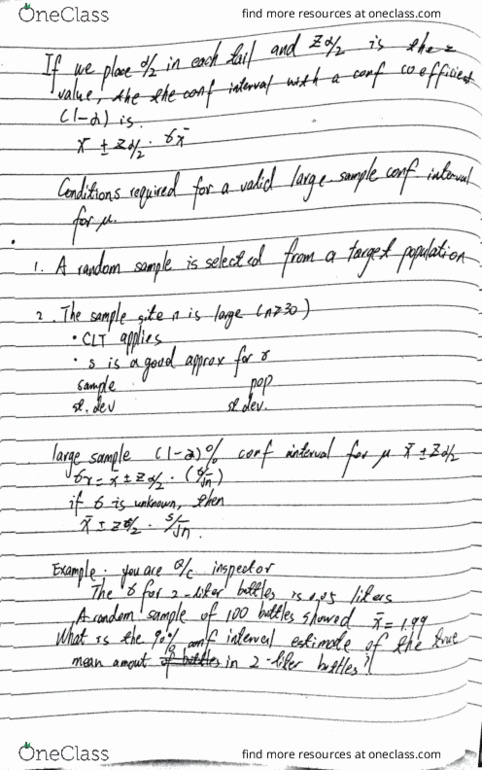 OneClass find more resources at oneclass.com
If we place α/2 in each tail and Zα/2 is the z
value, the the conf interval with a conf coefficient
(1-α) is.
x̄ ± Zα/2 · σx̄
Conditions required for a valid large sample conf interval
for μ.
1. A random sample is selected from a target population
2. The sample size n is large (n≥30)
• CLT applies
• s is a good approx for σ
sample pop
st. dev st. dev.
large sample (1-α)% conf interval for μ x̄ ± Zα/2
σx̄ = x̄ ± Zα/2 · (σ/√n)
if σ is unknown, then
x̄ ± Zα/2 · s/√n.
Example. you are Q/C inspector
The σ for 2-liter bottles is 0.05 liters
A random sample of 100 bottles showed x̄ = 1.99
What is the 90% conf interval estimate of the true
mean amout of bottles in 2-liter bottles?
OneClass find more resources at oneclass.com